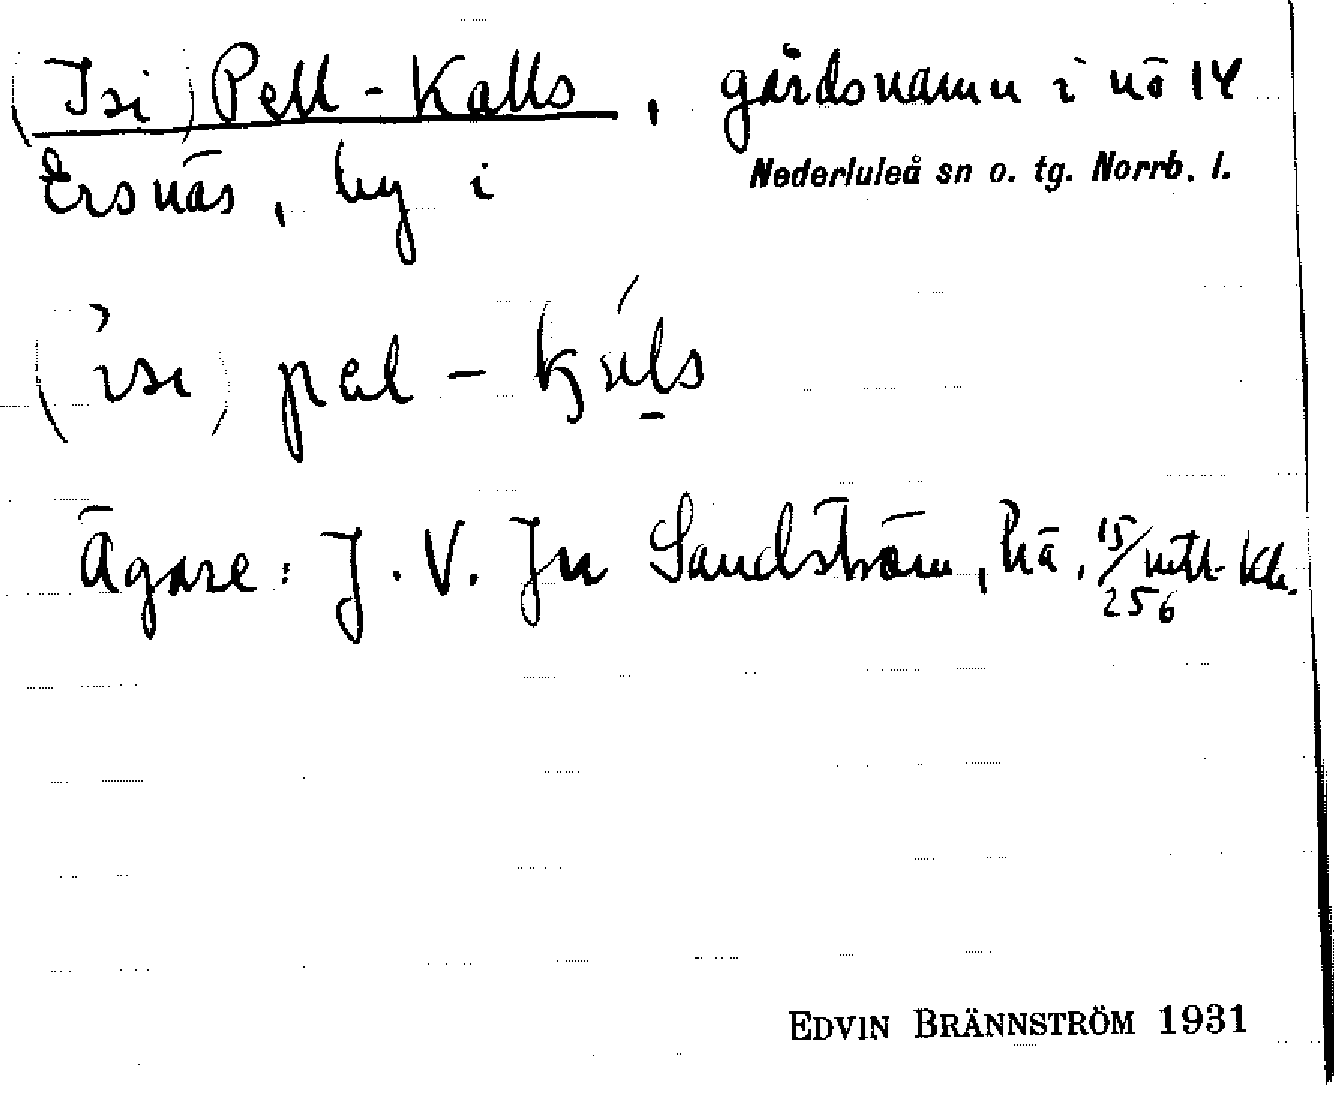 (Isi) Pell-Kalls, gårdsnamn i nö 14
Nederluleå sn o. tg. Norrb. l.
Ersnäs, by i
(isi) pel-
Ägare: J. V. Jn Sandström, hä. 15/256 mtl. Kh.
EDVIN BRÄNNSTRÖM 1931